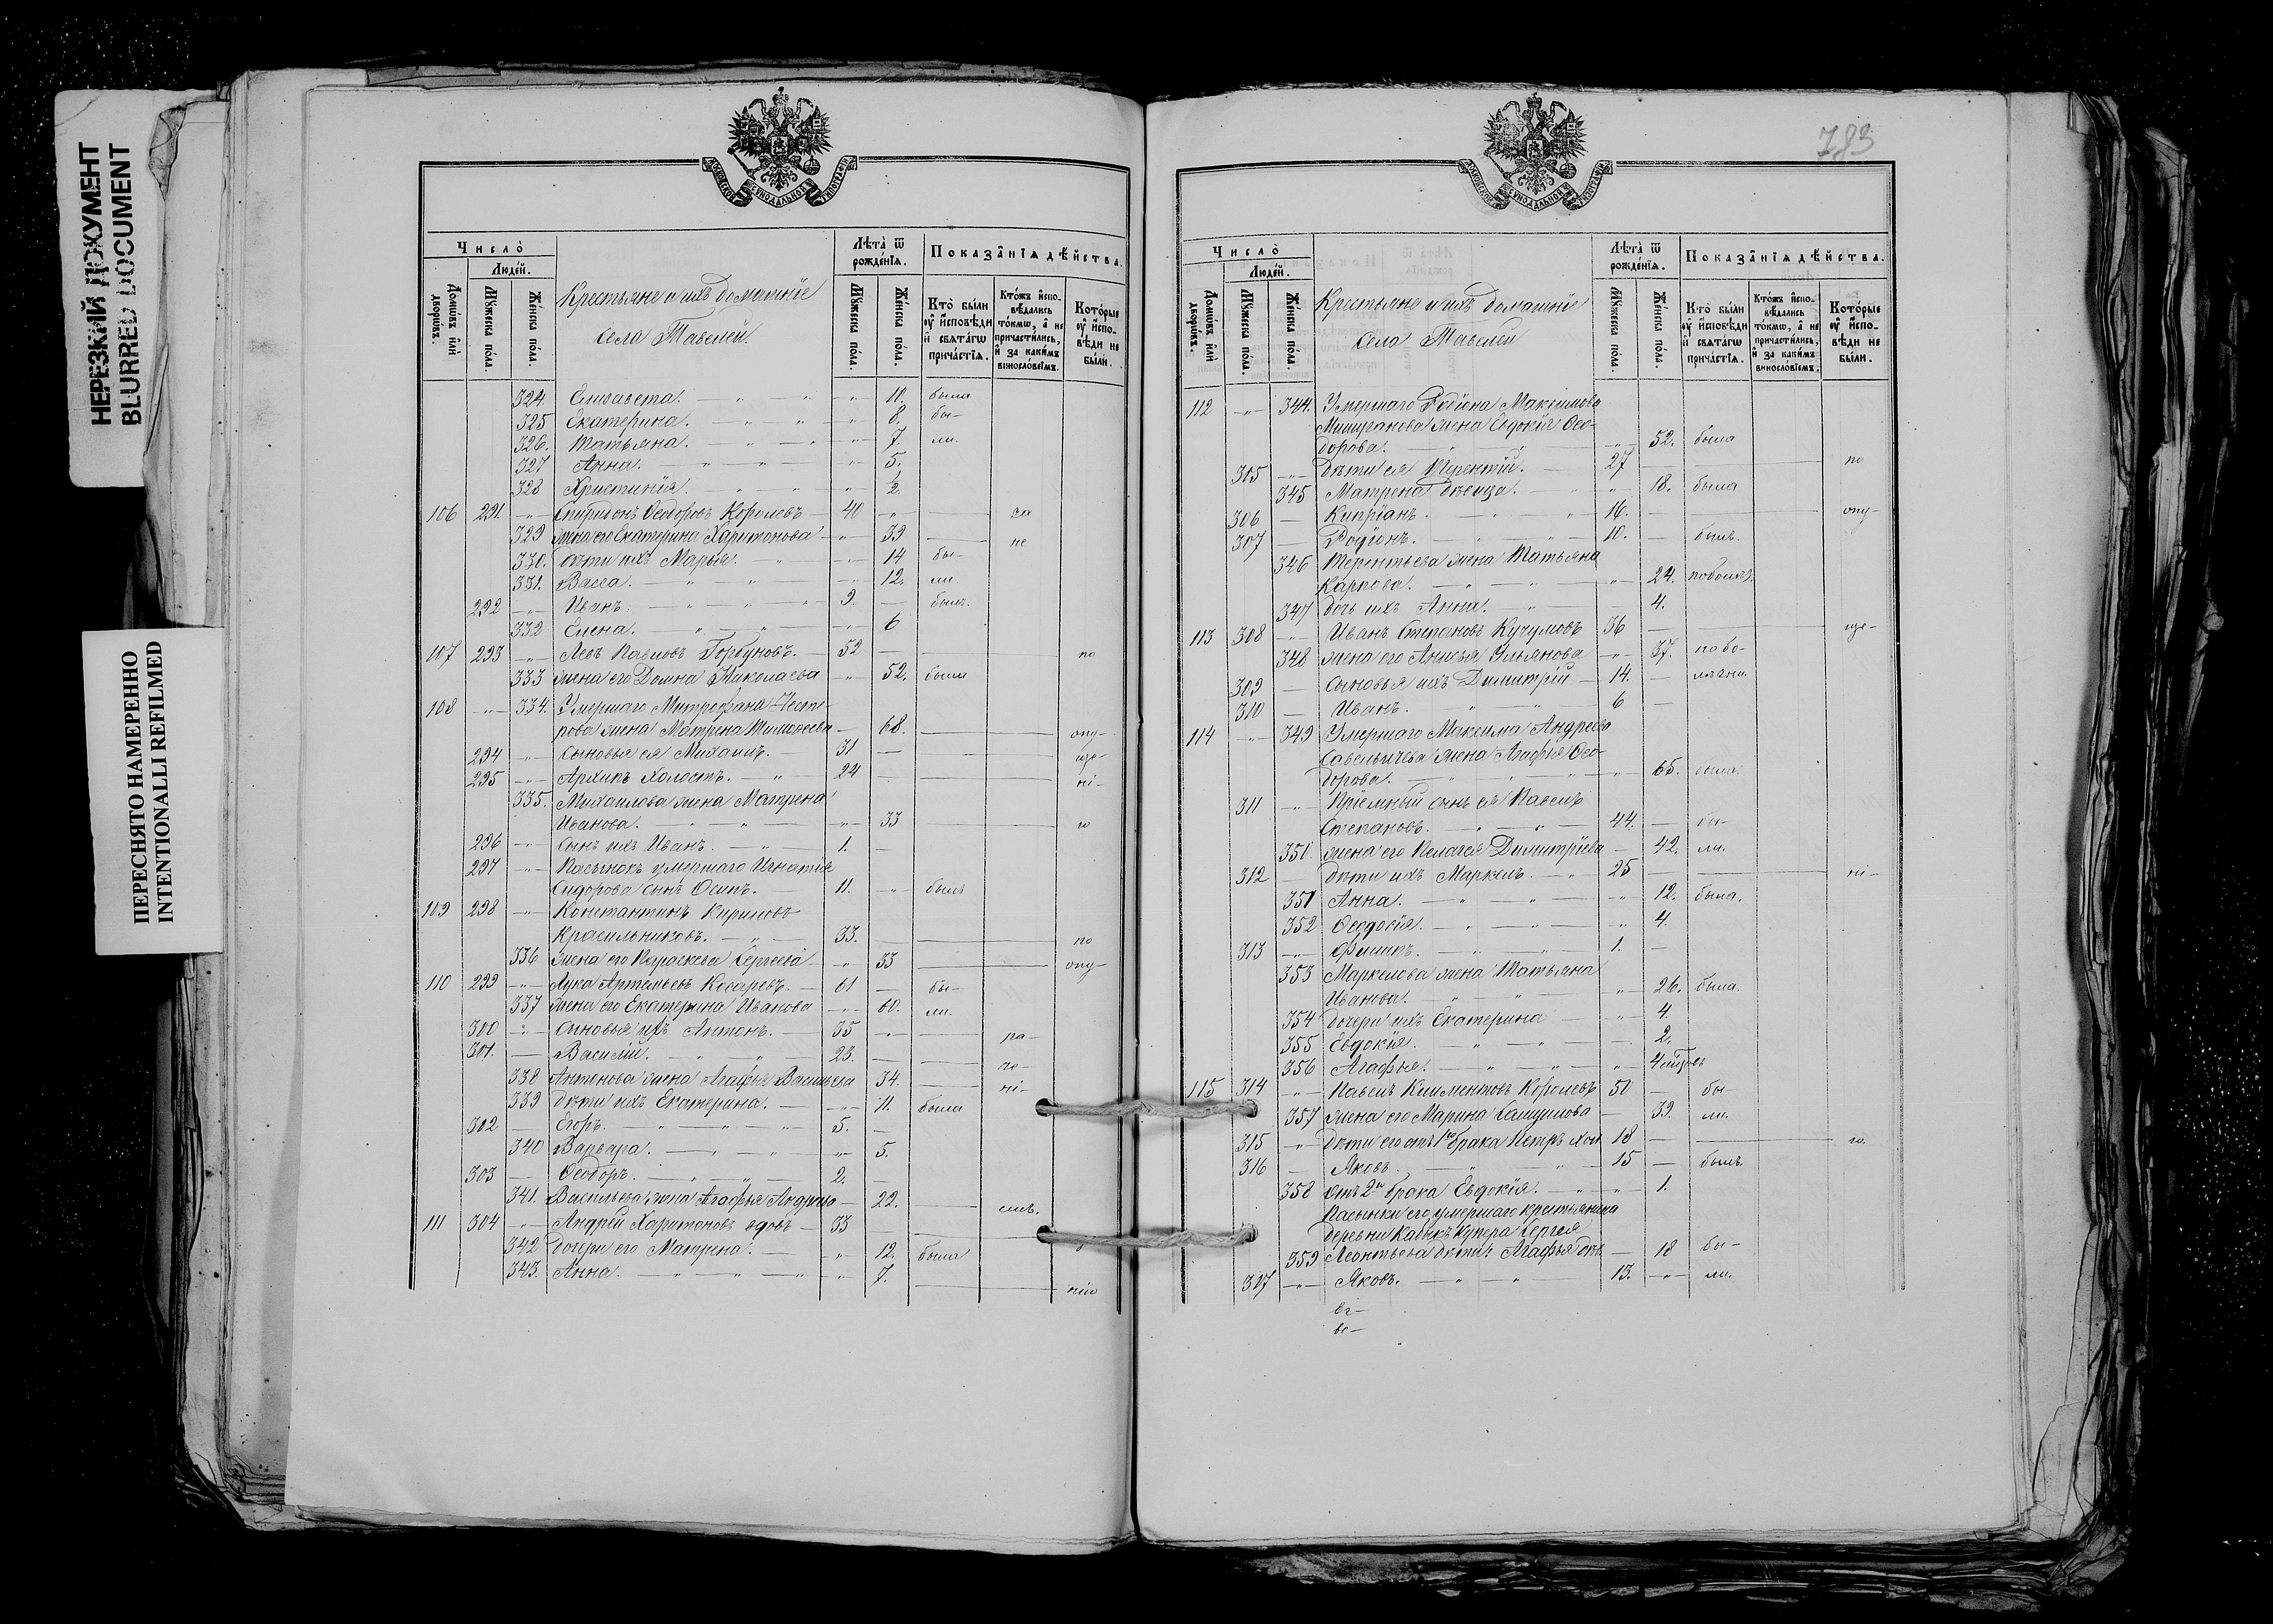 НЕРЕЗКИЙ ДОКУМЕНТ
BLURRED DOCUMENT
ПЕРЕСНЯТО НАМЕРЕННО
INTENTIONALLI REFILMED
Число̀
Люде́й.
Домѡ́въ и҆лѝ дворѡ́въ.
Мꙋ́жеска по́ла.
Же́нска по́ла.
Крестьяне и ихъ домашніе
села Тавелей.
Лѣ́та ѿ рожде́нїѧ.
Мꙋ́жеска по́ла.
Же́нска по́ла.
Показа̑нїѧ дѣ́йства.
Кто̀ бы́ли ᲂу҆ и҆сповѣ́ди и҆ свѧта́гѡ прича́стїѧ.
Кто́жъ и҆сповѣ́дались то́кмѡ, а҆ не причасти́лись, и҆ за каки́мъ винословїемъ.
Кото́рые ᲂу҆ и҆сповѣ́ди не бы́ли.
324. Елисавета. — 10. была
325 Екатерина. — 8. бы-
326. Татьяна. — 7. ли.
327 Анна. — 5.
328 Христинія. — 2.
106 291. Спиридонъ Ѳеодоровъ Королевъ 40 — за
329 жена его Екатерина Харитонова 39 — не
330. дѣти ихъ Марья. 14 бы-
331. Васса. — 12. ли.
292 Иванъ. — 9. — былъ.
332 Елена. — 6
107 293 Левъ Павловъ Горбуновъ. — 52 — по
333 жена его Домна Николаева 52. были
108 334. Умершаго Митрофана Несте-
рова жена Матрена Тимофеева 68. — опу-
294 Сыновья ея Михаилъ. 31 — ще-
295 Архипъ холостъ. — 24 — ні-
335. Михаилова жена Матрена
Иванова. — 33 — ю
296 Сынъ ихъ Иванъ. — 1. —
297 Пасынокъ умершаго Игнатія
Сидорова сынъ Осипъ. — 11. былъ
109 298 Константинъ Кириловъ
Красильниковъ. — 33. — по
336 жена его Параскева Сергеева 33 — опу-
110 299 Лука Артемьевъ Косаревъ. — 61 — бы-
337 жена его Екатерина Иванова 60. ли.
300 Сыновья ихъ Антонъ. — 35 — ра-
301. — Василій. — 23. —
338 Антонова жена Агафья Васильева 34.
339 дѣти ихъ Екатерина. — 11. была
302 — Егоръ. — 5. —
340 Варвара. — 5.
303 — Ѳеодоръ. — 2. —
341. Васильева жена Агафья Андреева 22.
111 304 Андрей Харитоновъ вдовъ — 33
342 Дочери его Матрена. — 12. была
343. Анна. — 7. — нію
783
Число̀
Люде́й.
Домѡ́въ и҆лѝ дворѡ́въ.
Мꙋ́жеска по́ла.
Же́нска по́ла.
Крестьяне и ихъ домашніе
Села Тавелей
Лѣ́та ѿ рожде́нїѧ.
Мꙋ́жеска по́ла.
Же́нска по́ла.
Показа̑нїѧ дѣ́йства.
Кто̀ бы́ли ᲂу҆ и҆сповѣ́ди и҆ свѧта́гѡ прича́стїѧ.
Кто́жъ и҆сповѣ́дались то́кмѡ, а҆ не причасти́лись, и҆ за каки́мъ винословїемъ.
Кото́рые ᲂу҆ и҆сповѣ́ди не бы́ли.
112 344. Умершаго Родіона Максимова
жена Евдокія Ѳео-
дорова. — 52. была
305 Дѣти ея Терентій. — 27 — по
345 Матрена дѣвица. — 18. была
306 — Кипріанъ. — 16. — опу-
307 — Родіонъ. — 10. — былъ.
346 Терентьева жена Татьяна
Карпова. — 24. поболѣз.
347 дочь ихъ Анна. — 4.
113 308 Иванъ Степановъ Кучумовъ 36 — ще-
348 жена его Анисья Ульянова 37. по бо-
309 — Сыновья ихъ Димитрій — 14. —
310 — Иванъ. — 6 —
114 349 Умершаго Максима Андреева
Савельичева жена Агафья Ѳео-
дорова. — 65. была.
311 Пріемный сынъ ея Павелъ
Степановъ. — 44. — бы-
351 жена его Пелагея Димитріева — 42. ли.
312 — Дѣти ихъ Маркелъ. — 25 — ні-
351 Анна. — 12. была.
352 Ѳеодосія. — 4.
313 Филипъ. — 1. —
353 Маркелова жена Татьяна
Иванова. — 26. была.
354 Дочери ихъ Екатерина — 4.
355 Евдокія. — 2.
356 Агафья. — 4 мѣсяцовъ
115 314 Павелъ Климентовъ Королевъ 50 — бы-
357 жена его Марина Самуилова — 39. ли.
315 Дѣти его отъ 1го брака Петръ хол. 18 — ю.
316 — Яковъ. — 15 — былъ.
358 отъ 2го брака Евдокія. — 1.
Пасынки его умершаго крестьянина
деревни Кабыкъ Купера Сергея
359 Леонтьева дѣти: Агафья дѣв. — 18 бы-
307 Яковъ. — 13. ли.